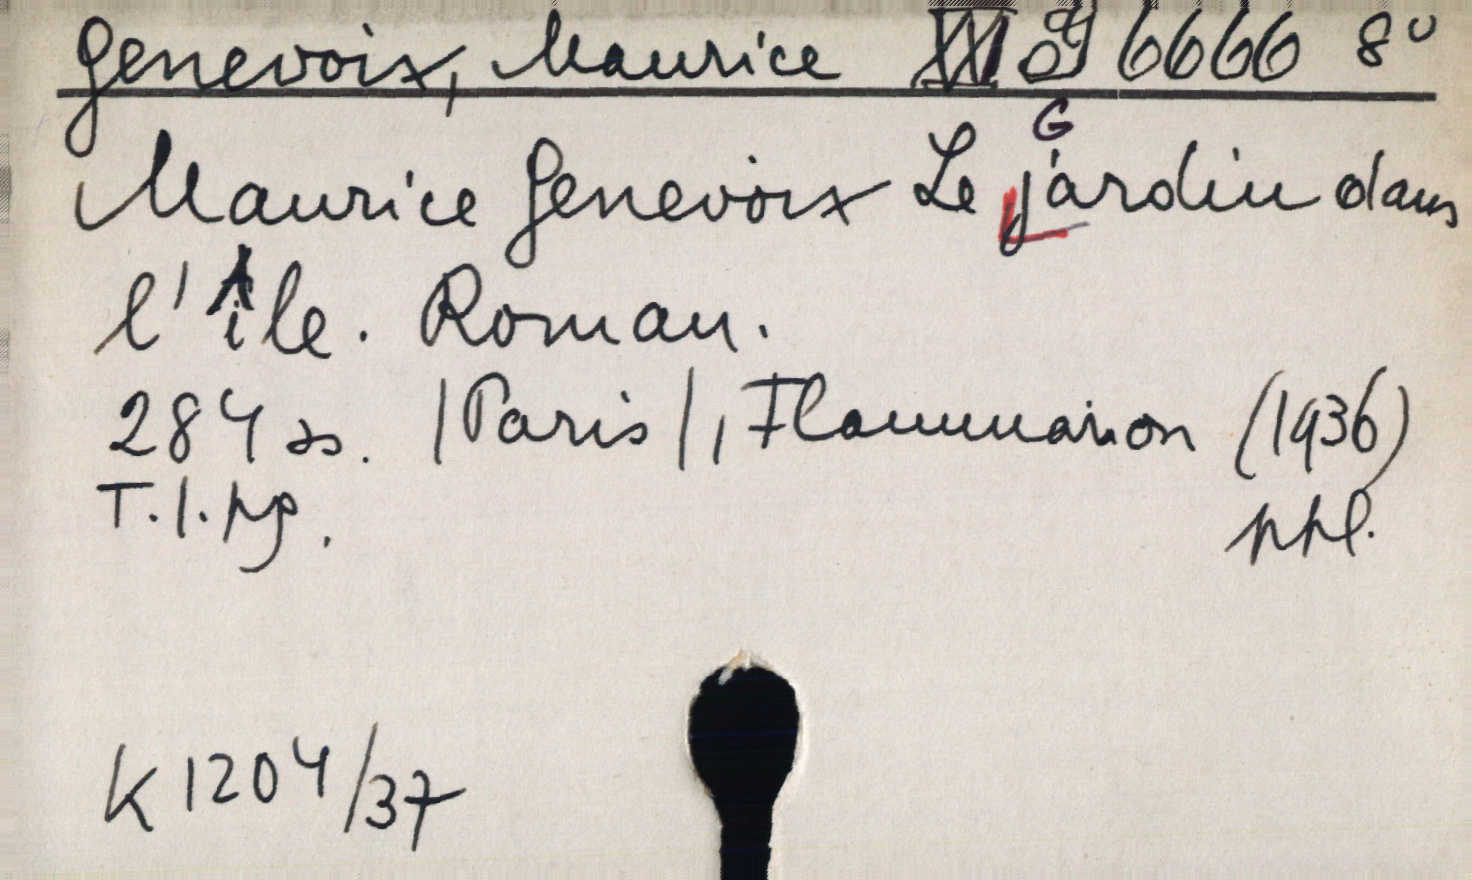 Genevoix, Maurice XXI g 6666 8°
G
Maurice Genevoix Le jardin dans
l'île. Roman.
284 ss. |Paris|, Flammarion (1936)
T.l.pg. ppl.
K 1204/37